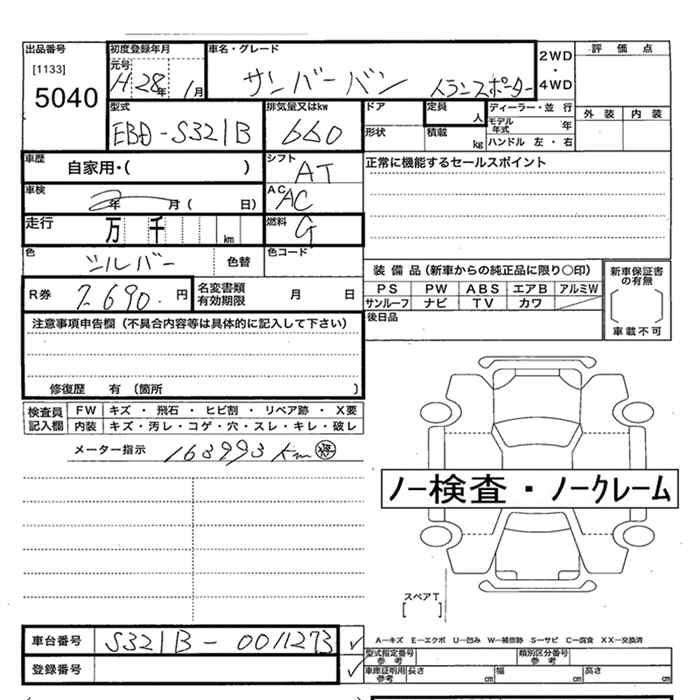 出品番号 初度登録年月 車名・グレード 2WD・4WD 評価点
[1133] 元号 H 28年 1月 サンバーバン トランスポーター
5040
型式 排気量又はkw ドア 定員 人 ディーラー・並行 外装 内装
EBD-S321B 660 形状 積載 kg モデル年式 年
ハンドル 左・右
車歴 自家用・( ) シフト AT 正常に機能するセールスポイント
車検 年 月( 日) AC AC
走行 万 千 km 燃料 G
色 シルバー 色替 色コード
装備品(新車からの純正品に限り○印) 新車保証書の有無
PS PW ABS エアB アルミW
サンルーフ ナビ TV カワ
車載不可
R券 7690 円 名変書類有効期限 月 日 後日品
注意事項申告欄(不具合内容等は具体的に記入して下さい)
修復歴 有 (箇所 )
検査員記入欄 FW キズ・飛石・ヒビ割・リペア跡・X要
内装 キズ・汚レ・コゲ・穴・スレ・キレ・破レ
メーター指示 163993km
ノー検査・ノークレーム
スペアT
[ ]
A―キズ E―エクボ U―凹み W―補修跡 S―サビ C―腐食 XX―交換済
車台番号 S321B-0011273 ✓ 型式指定番号 参考 類別区分番号 参考
登録番号 ✓ 車庫証明用 参考 長さ cm 幅 cm 高さ cm